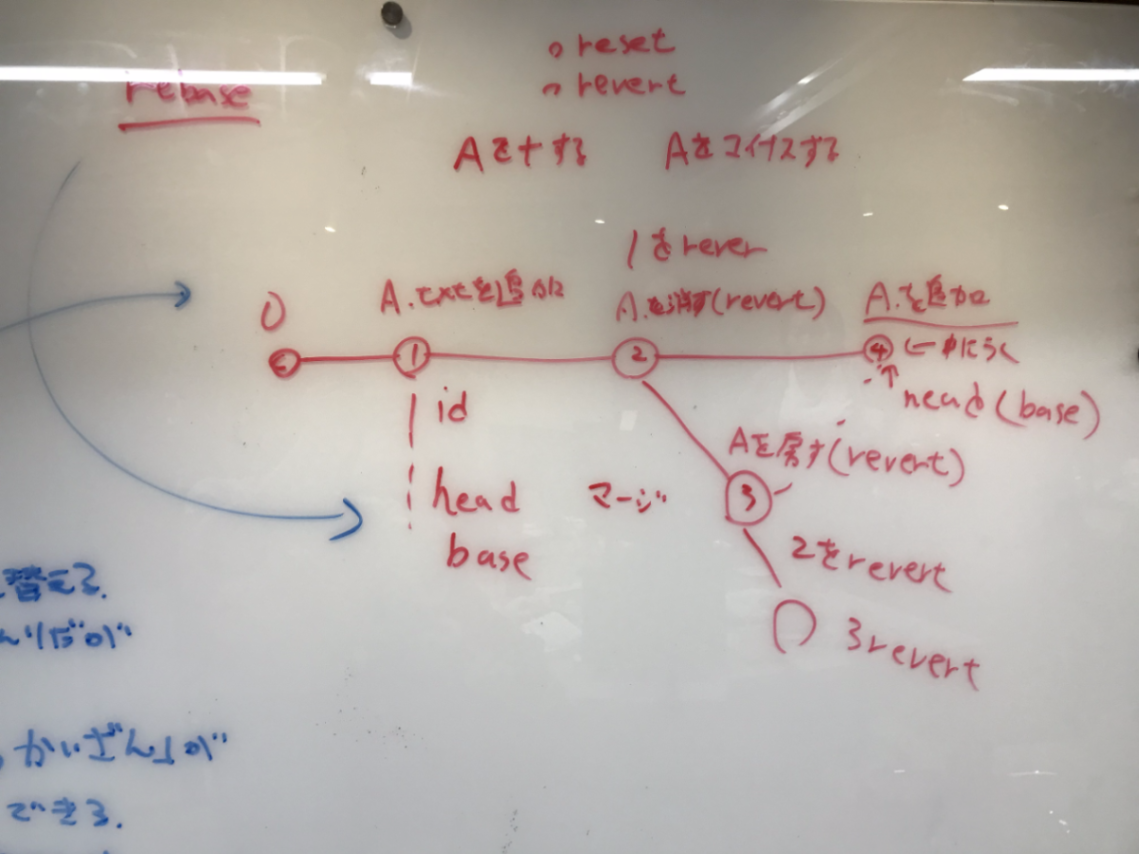 reset
revert
rebase
Aを+する Aをマイナスする
1をrever
0 A.txtを追加 A.を消す(revert) A.を追加
1 2 4
head(base)
id
Aを戻す(revert)
3
head マージ
base
2をrevert
3revert
替える.
かいざん」が
できる.